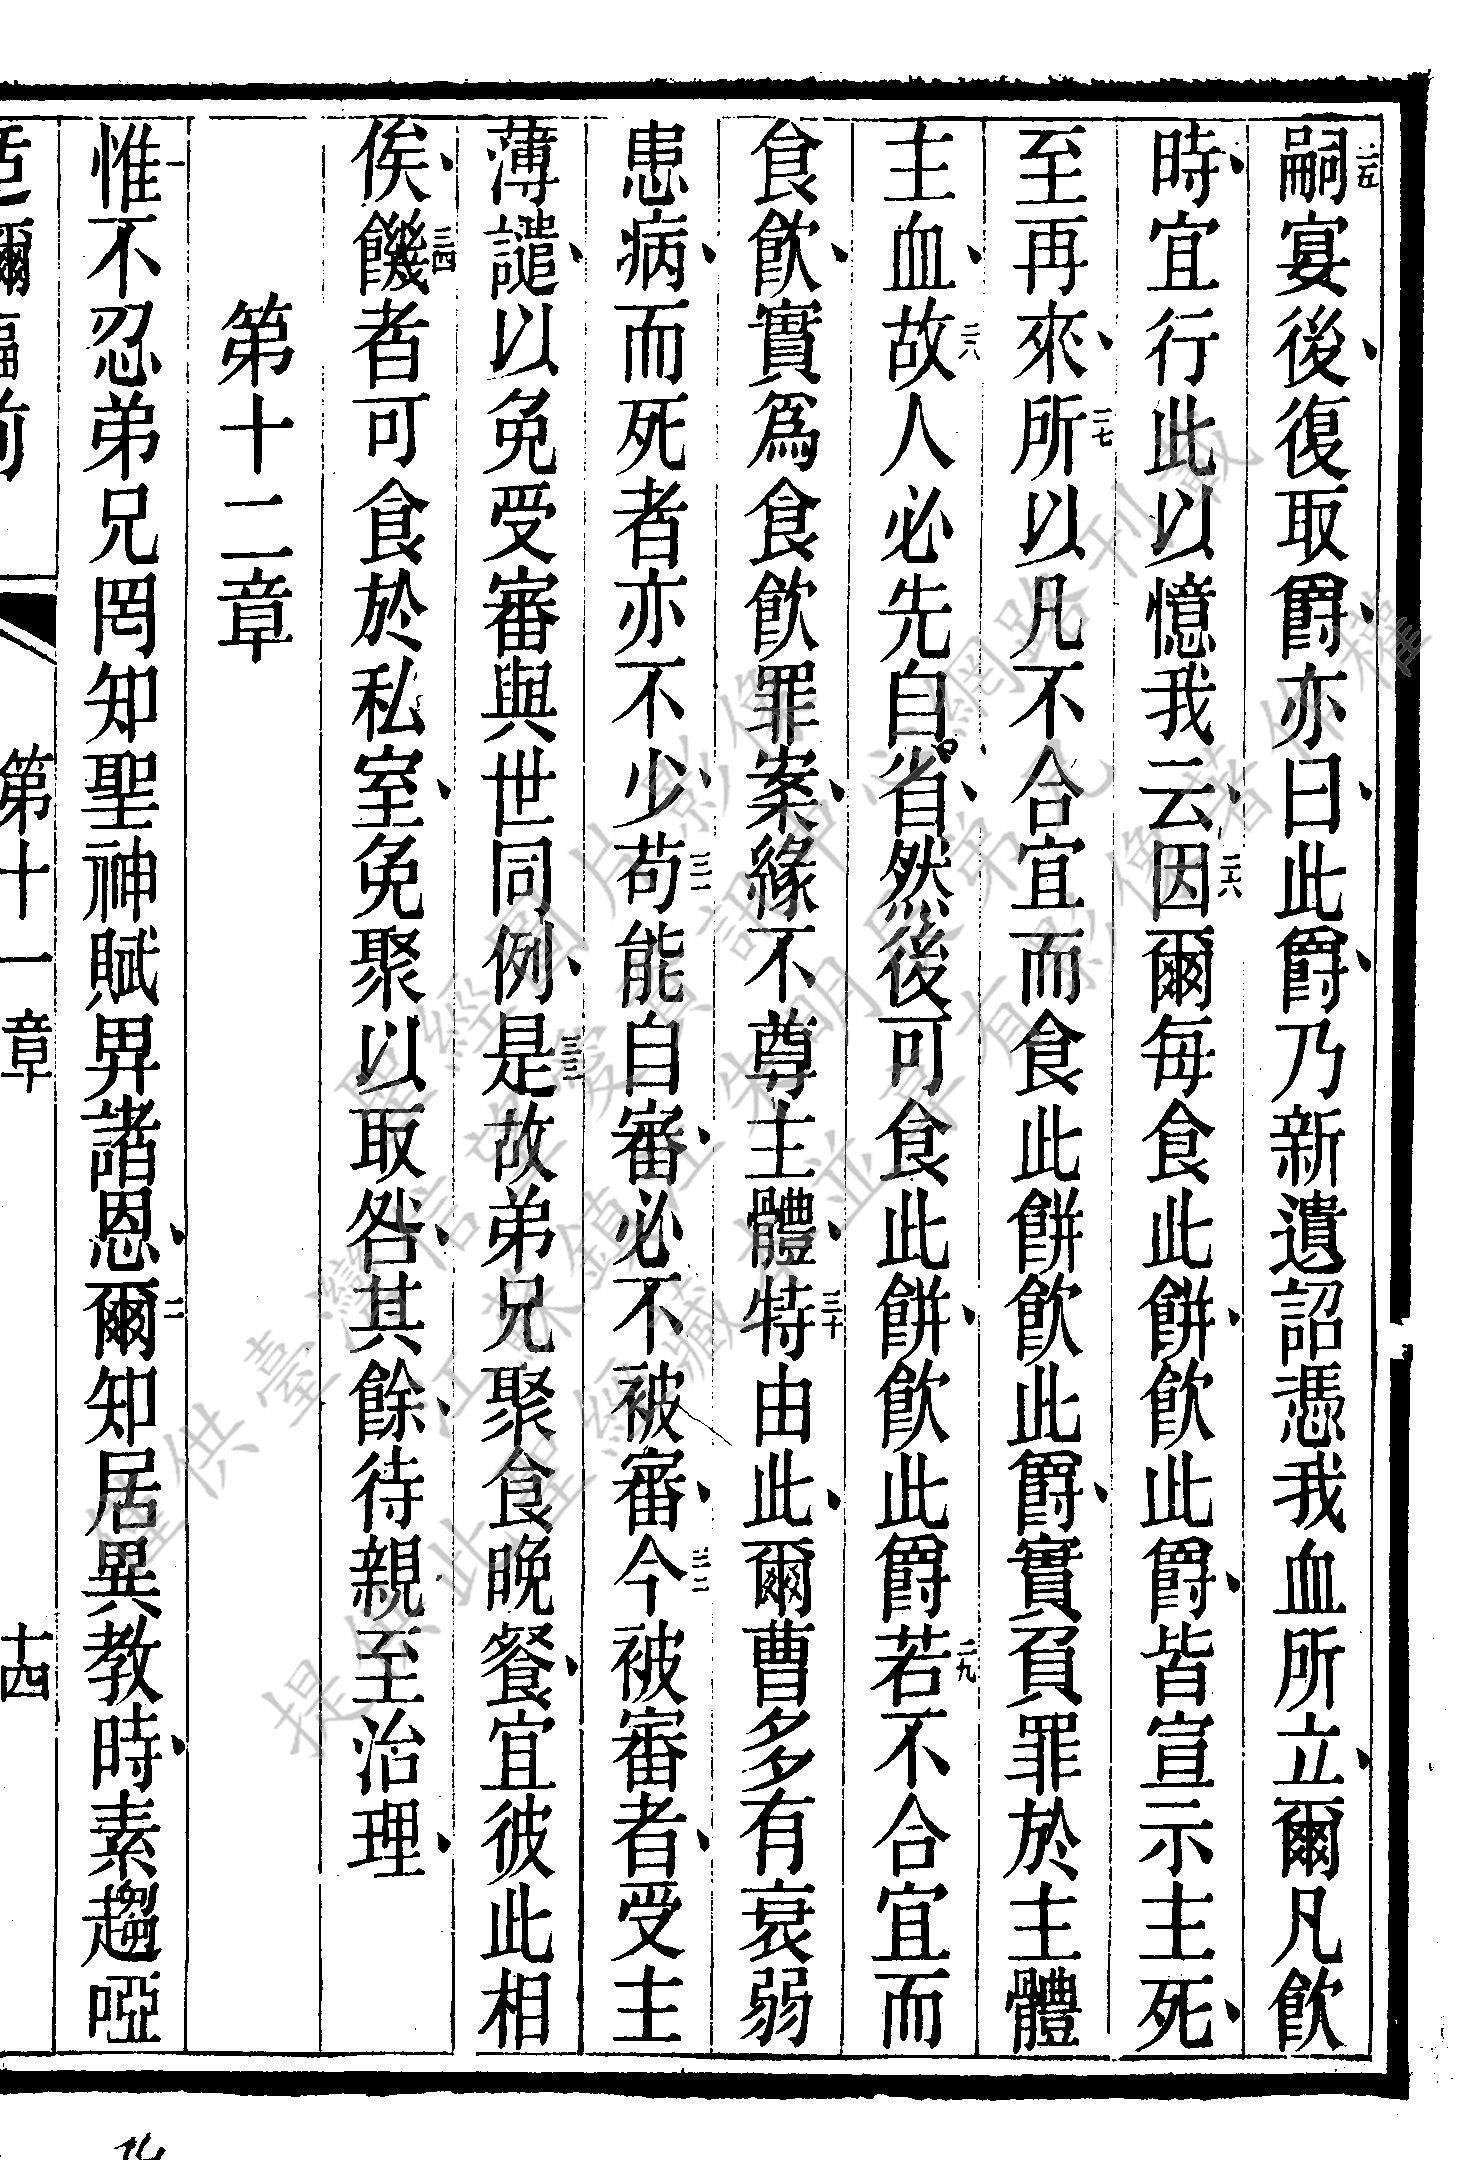 二五嗣宴後、復取爵、亦曰、此爵、乃新遺詔憑我血所立、爾凡飲
時、宜行此以憶我云、二六因爾每食此餅、飲此爵、皆宣示主死、
至再來、二七所以凡不合宜而食此餅飲此爵、實負罪於主體
主血、二八故人必先自省、然後可食此餅、飲此爵二九若不合宜而
食飲、實爲食飲罪案、緣不尊主體、三十特由此、爾曹多有衰弱
患病、而死者亦不少、三一苟能自審、必不被審、三二今被審者、受主
薄譴、以免受審與世同例、三三是故弟兄聚食晚餐、宜彼此相
俟、三四饑者可食於私室、免聚以取咎、其餘、待親至治理、
第十二章
一惟不忍弟兄罔知聖神賦畀諸恩、二爾知居異教時、素趨啞
第十一章
十四